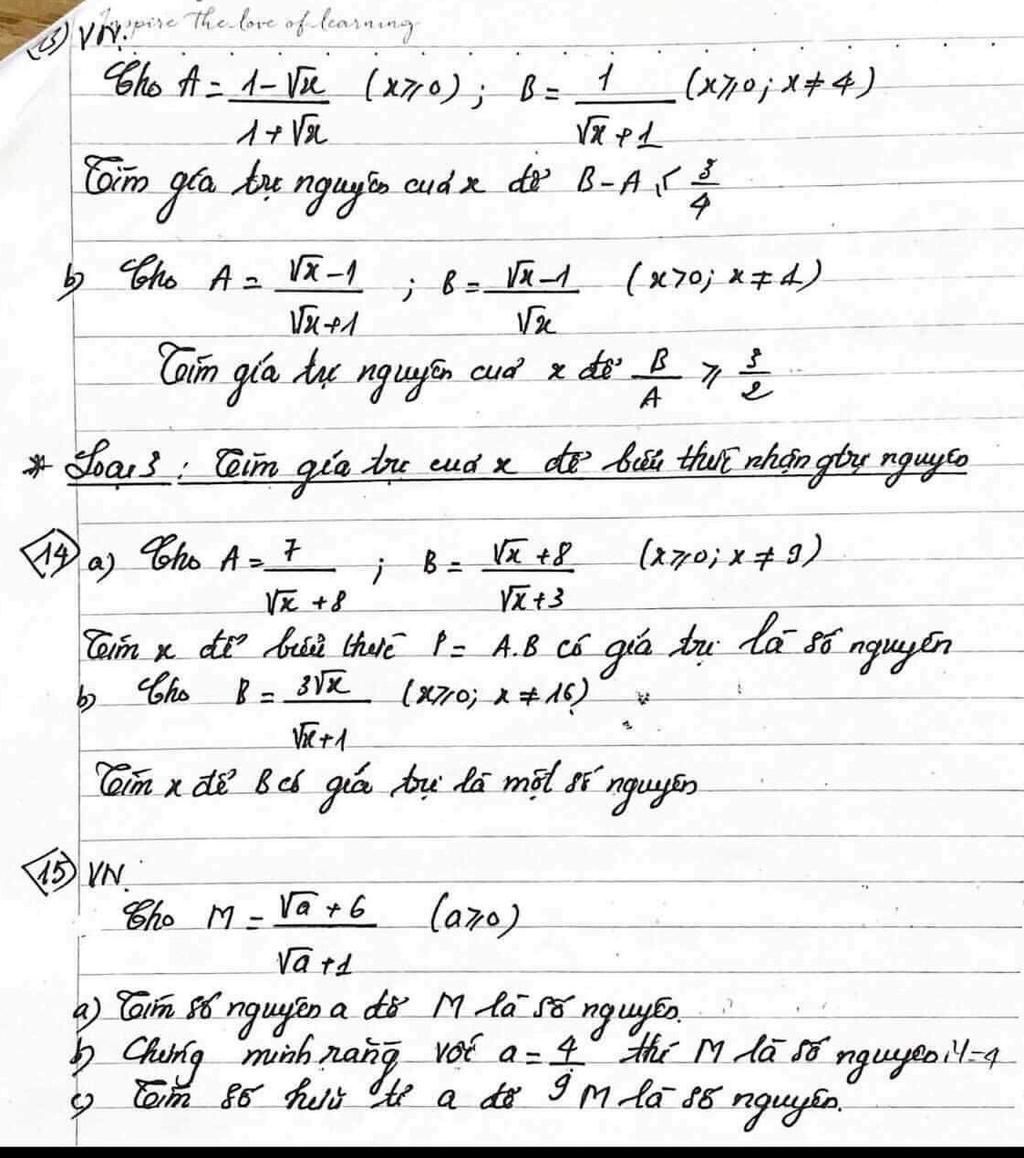 Inspire the love of learning
13) VN.
Cho A = (1-√x)/(1+√x) (x⩾0); B = 1/(√x+1) (x⩾0; x≠4)
Tìm giá trị nguyên của x để B-A ⩽ 3/4
b) Cho A = (√x-1)/(√x+1) ; B = (√x-1)/√x (x>0; x≠1)
Tìm giá trị nguyên của x để B/A ⩾ 3/2
* Loại 3: Tìm giá trị của x để biểu thức nhận gtrị nguyên
14 a) Cho A = 7/(√x+8) ; B = (√x+8)/(√x+3) (x⩾0; x≠9)
Tìm x để biểu thức P = A.B có giá trị là số nguyên
b) Cho B = 3√x/(√x+1) (x⩾0; x≠16)
Tìm x để B có giá trị là một số nguyên
15 VN.
Cho M = (√a+6)/(√a+1) (a⩾0)
a) Tìm số nguyên a để M là số nguyên.
b) Chứng minh rằng với a = 4/9 thì M là số nguyên
c) Tìm số hữu tỉ a để M là số nguyên.